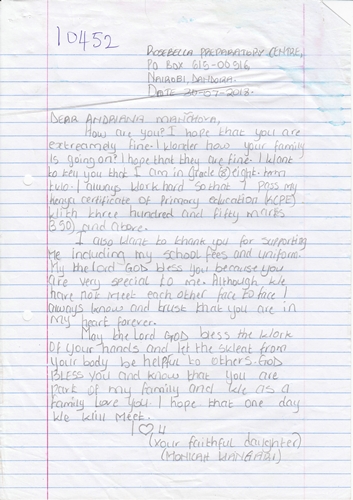 10452
DOSEBELLA PREPARATORY CENTRE,
PO BOX 615-00516
NAIROBI, DANDORA.
DATE 20-07-2018.
DEAR ANDRIANIA
How are you? I hope that you are
extreamely fine. I Worder how your family
is going on? I hope that they are fine. I Want
to tell you that I am in Grade (8) eight term
two. I always Work hard so that I pass my
kenya certificate of Primary education (KCPE)
With three hundred and fifty marks
350) and above.
I also Want to thank you for supporting
me including my school fees and uniform.
My the lord GOD bless you because you
are very special to me. Although We
have not meet each other face to face I
always know and trust that you are in
my heart forever.
May the Lord GOD bless the Work
Of your hands and let the sweat from
your body be helpful to others. GOD
BLESS you and know that you are
part of my family and We as a
family love you. I hope that one day
We Will Meet.
I ♡ U
(Your faithful daughter)
(MONICAH WANGARI)